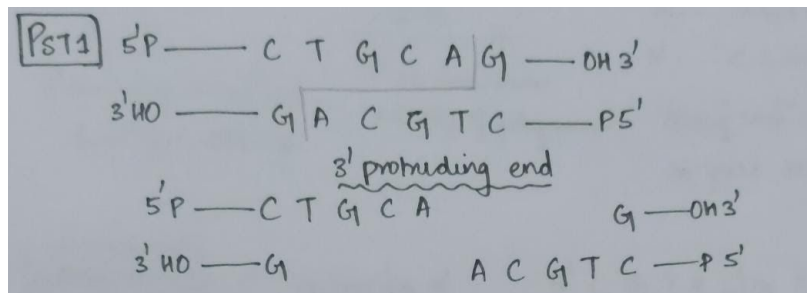 PST1 5'P — C T G C A G — OH 3'
3'HO — G A C G T C — P5'
3' protruding end
5'P — C T G C A G — OH 3'
3'HO — G A C G T C — P 5'